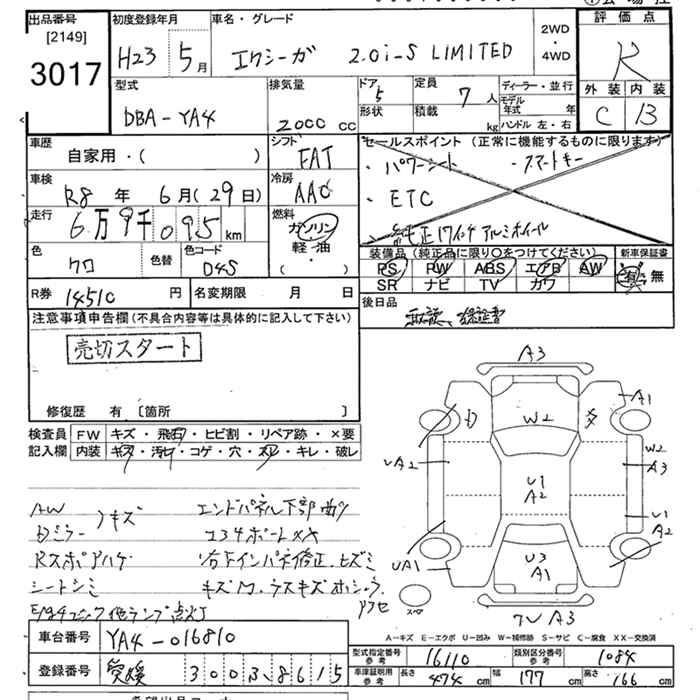 出品番号
[2149]
3017
初度登録年月
H23 5月
車名・グレード
エクシーガ 2.0i-S LIMITED
2WD
・
4WD
評価点
R
外装 内装
C B
型式
DBA-YA4
排気量
2000 cc
ドア
5
形状
定員
7 人
積載
kg
ディーラー・並行
モデル年式 年
ハンドル 左・右
車歴
自家用・( )
シフト
FAT
セールスポイント(正常に機能するものに限ります)
・パワーシート ・スマートキー
・ETC
・純正17インチアルミホイール
車検
R8 年 6月(29日)
冷房
AAC
走行
6万9千095 km
燃料
ガソリン
軽・油
( ・ )
色
クロ
色替
色コード
D4S
装備品(純正品に限り〇をつけてください)
PS PW ABS エアB AW
SR ナビ TV カワ
新車保証書
有・無
R券 14510 円
名変期限 月 日
後日品
取説、保証書
注意事項申告欄(不具合内容等は具体的に記入して下さい)
売切スタート
修復歴 有 [箇所 ]
検査員
記入欄
FW キズ・飛石・ヒビ割・リペア跡・×要
内装 キズ・汚れ・コゲ・穴・スレ・キレ・破レ
AW
Dミラー
キズ
エンドパネル下部曲り
Rスポアハゲ
シートシミ
A3
A1
W2
W2
A3
UA2
U1
A2
U1
A2
UA1
U3
A1
A3
A-キズ E-エクボ U-凹み W-補修跡 S-サビ C-腐食 XX-交換済
車台番号 YA4-016810
登録番号 愛媛 300 3 8615
型式指定番号
参考
16110
類別区分番号
参考
1084
車庫証明用
参考
長さ 474 cm 幅 177 cm 高さ 166 cm